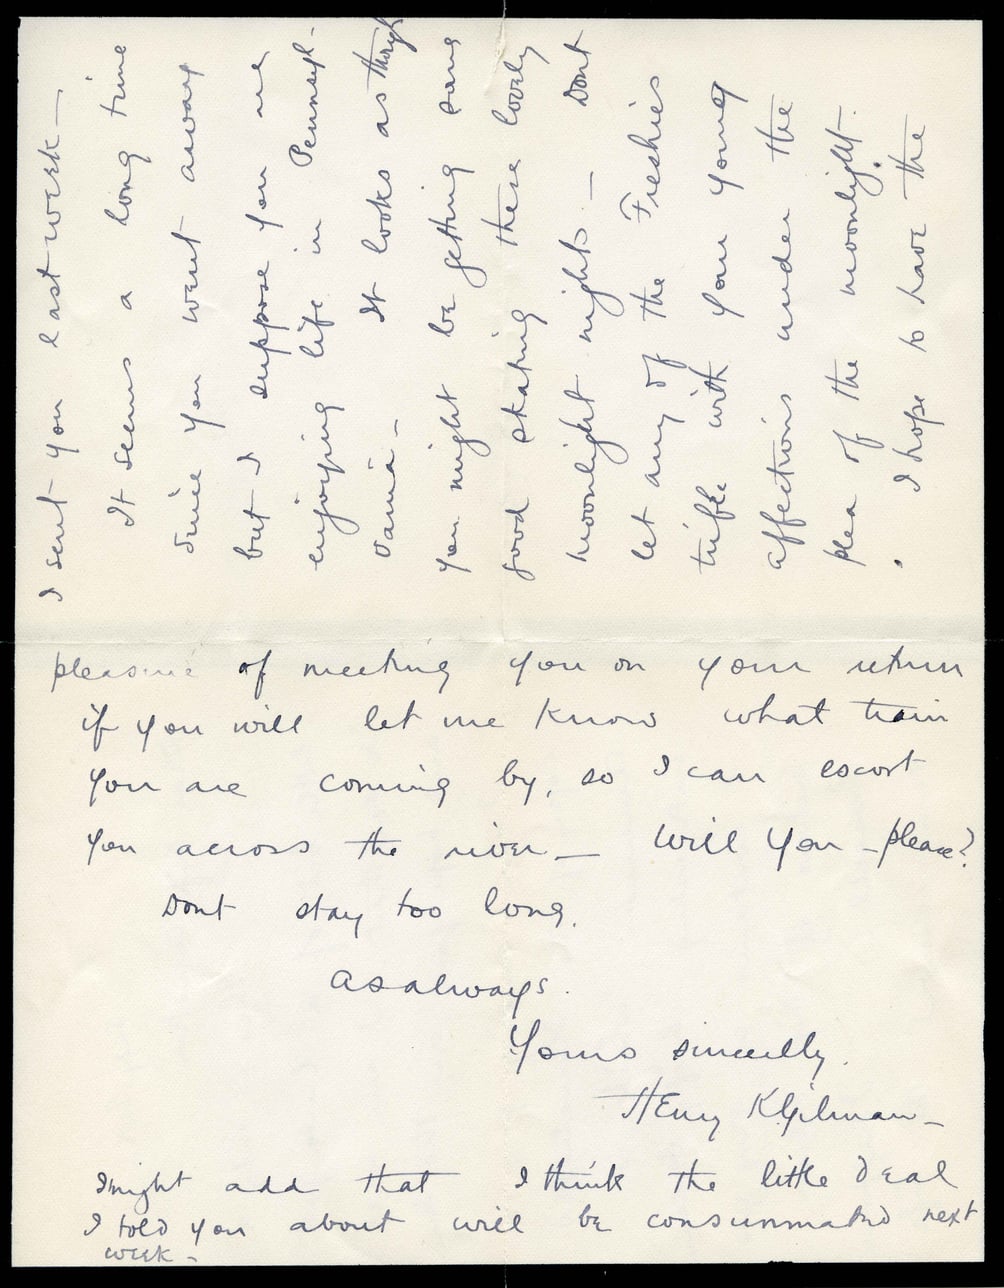 I sent you last week —
It seems a long time
since you went away
but I suppose you are
enjoying life in Pennsyl-
vania — It looks as though
you might be getting some
good skating these lovely
moonlight nights — Dont
let any of the Freshies
trifle with your young
affections under the
plea of the moonlight.
I hope to have the
pleasure of meeting you on your return
if you will let me know what train
you are coming by, so I can escort
you across the river — Will you — please?
Dont stay too long.
As always.
Yours sincerely.
Henry K Gilman —
I might add that I think the little deal
I told you about will be consummated next
week —